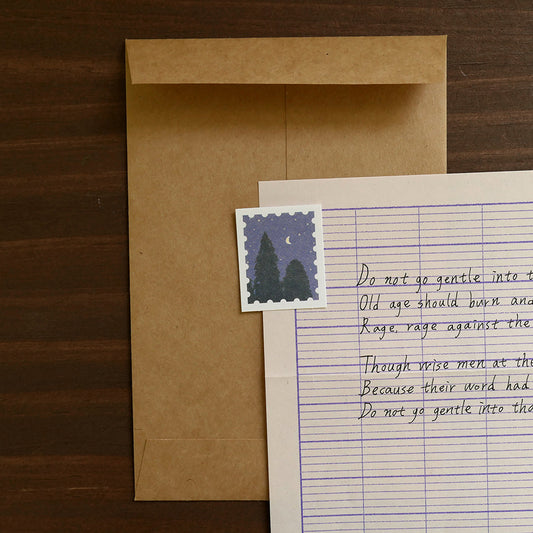 Do not go gentle into t
Old age should burn and
Rage, rage against the
Though wise men at the
Because their word had
Do not go gentle into tha